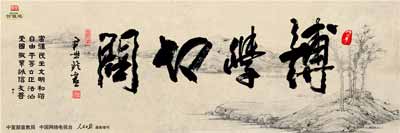 博學切問
富强民主文明和諧
自由平等公正法治
愛國敬業誠信友善
中宣部宣教局 中国网络电视台